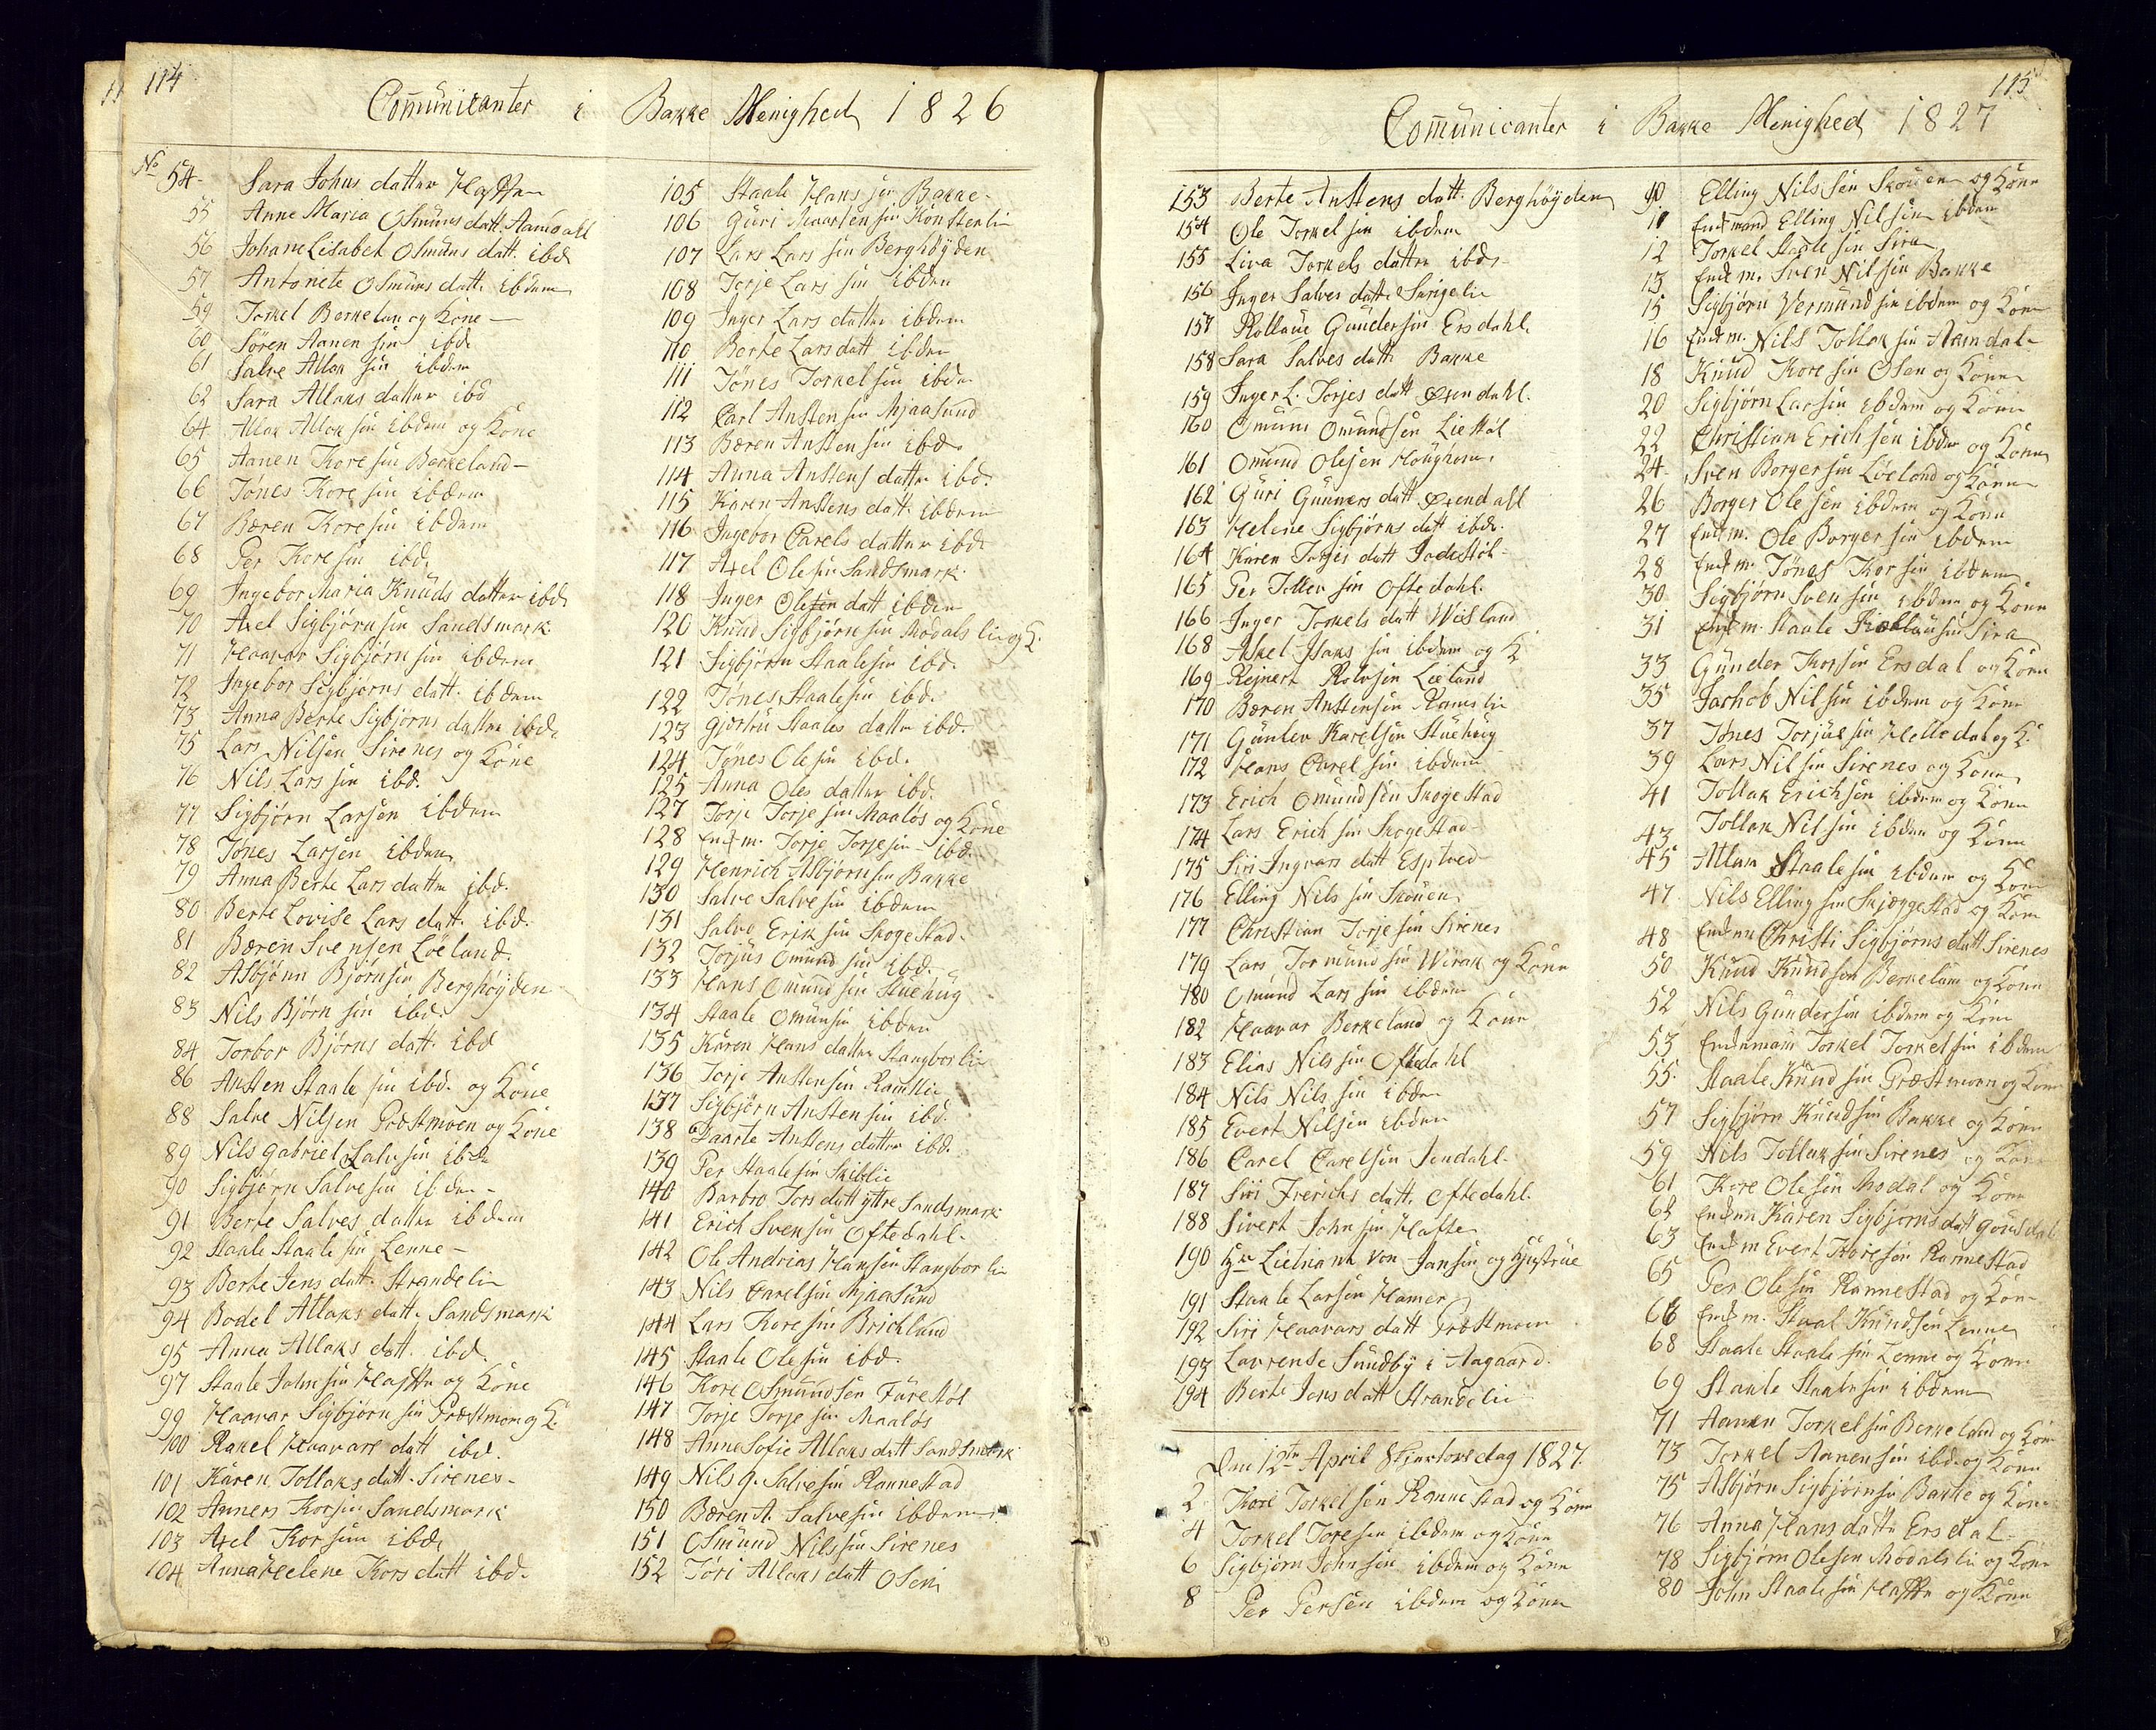 114
Comunicanter i Bakke Menighed 1826
No 54- Sara Johns datter Hafften
55 Anne Maria Osmuns datt. Aamdahl
56 Johane Lisabet Osmuns datt. ibd
57 Antonete Osmuns datt. ibdem
59 Torkel Berkelan og Kone
60 Sören Aanen sin ibd.
61 Salve Atlak sin ibdem
62 Sara Atlaks datter ibd
64 Atlak Atlak sin ibdem og Kone
65 Aanen Kore sin Berkeland-
66 Tönes Kore sin ibdem
67 Bæren Kore sin ibdem
68 Per Kore sin ibd.
69 Ingebor Maria Knuds datter ibd.
70 Axel Sigbjörn sin Sandsmark
71 Haavar Sigbjörn sin ibdem
72 Ingebor Sigbjörns datt. ibdem
73 Anna Berte Sigbjörns datter ibd.
75 Lars Nilsen Sirenes og Kone
76 Nils Lars sin ibd.
77 Sigbjörn Larsen ibdem
78 Tönes Larsen ibdem
79 Anna Berte Lars datter ibd.
80 Berte Lovise Lars datt. ibd.
81 Bæren Svensen Löeland.
82 Asbjönn Björnsin Berghöyden
83 Nils Björn sin ibd.
84 Torbor Björns datt. ibd
86 Ansten Staale sin ibd. og Kone
88 Salve Nilsen Præstmoen og Kone
89 Nils Gabriel Salve sin ibd.
90 Sigbjörn Salvesin ibdem-
91 Berte Salves datter ibdem
92 Staale Staale sin Lenne-
93 Berte Jens datt. Strandeli
94 Bodel Atlaks datt. Sandsmark
95 Anna Atlaks datt. ibd.
97 Staale John sin Hafften og Kone
99 Haavar Sigbjörn sin Præstmoen og K.
100 Rakel Haavars datt ibd.
101 Karen Tollaks datt. Sirenes-
102 Anners Korsin Sandsmark
103 Axel Korsin ibd.
104 Anna Helene Kors datt ibd.
105 Staale Hans sin Bakke-
106 Guri
107 Lars Lars sin Berghöyden
108 Torje Lars sin ibdem
109 Inger Lars datter ibdem
110 Berte Lars datt ibdem
111 Tönes Torkel sin ibdem
112 Carl Ansten sin Mjaasund
113 Bæren Ansten sin ibd.
114 Anna Anstens datter ibd.
115 Karen Anstens datt. ibdem
116 Ingebor Carels datter ibd.
117 Axel Ole sin Sandsmark.
118 Inger Olesen datt ibdem
120 Knud Sigbjörn sin Modals lie og K.
121 Sigbjörn Staalesin ibd.
122 Tönes Staalesin ibd.
123 Gjertru Staales datter ibd.
124 Tönes Ole sin ibd.
125 Anna Oles datter ibd.
127 Torje Torje sin Maalös og Kone
128 Enkm. Torje Torjesin ibd.
129 Henrich Asbjörnsin Bakke
130 Salve Salve sin ibdem
131 Salve Erik sin Skogestad-
132 Torjus Omund sin ibd.
133 Hans Omund sin Stuehug
134 Staale Omunsin ibdem
135 Karen Hans datter Stangborli
136 Torje Anstensin Ramslie
137 Sigbjörn Ansten sin ibd.
138 Daarte Anstens datter ibd.
139 Per Staale sin Skiblie
140 Barbro Tors datt yttre Sandsmark
141 Erich Svensin Oftedahl-
142 Ole Andreas Hansin Stangborli
143 Nils Carelsin Mjaasund
144 Lars Kore sin Brickland
145 Staale Ole sin ibd.
146 Kore Osmundsen Furestöl
147 Torje Torje sin Maalös
148 Anne Sofie Atlaks datt Sandsmark
149 Nils G. Salvesin Rannestad
150 Bæren A. Salvesin ibdem
151 Osmund Nilssin Sirenes
152 Töri Atlaks datt Osen
115
Comunicanter i Bakke Menighed 1827
153 Berte Anstens datt. Berghöyden
154 Ole Torkel sin ibdem
155 Liva Torkels datter ibd-
156 Inger Salves datt.
157 Rollaue Gundersin Ersdahl.
158 Sara Salves datt Bakke
159 Inger L. Torjes datt Öxendahl.
160 Omun Omundsen Liestöl
161 Omund Olesen Haughom.
162 Guri Gunners datt. Öxendahl
163 Helene Sigbjörns datt ibd.
164 Karen Torjes datt Jodestöl-
165 Per Tollev sin Oftedahl.
166 Inger Torkels datt Wiisland
168 Askel Isaks sin ibdem og K
169 Rejnert Rolvsin Lieland
170 Bæren Anstensin Ramsli
171 Gunlev Karelsin Stuehug
172 Hans Carel sin ibdem
173 Erich Omundsen Skogestad
174 Lars Erich sin Skogestad-
175 Siri Ingvars datt Esptved
176 Elling Nils sin Skouen
177 Christian Torje sin Sirenes
179 Lars Tormund sin Wirak og Kone
180 Omund Lars sin ibdem
182 Haavar Berkeland og Kone
183 Elias Nils sin Oftedahl
184 Nils Nils sin ibdem
185 Evert Nilsen ibdem
186 Carel Carelsin Jendahl-
187 Siri Frerichs datt. Oftedahl.
188 Sivert John sin Hafte.
190 Hr Lietnant von Jansen og Hustrue
191 Staale Larsen Hamer
192 Siri Haavars datt Præstmoen
193 Lavrense Sundby i Aagaard.
194 Berte Jens datt Strandeli
Den 12te April Skjærtorsdag 1827.
2 Kore Torkelsen Rannestad og Kone
4 Torkel Toresen ibdem og Kone
6 Sigbjörn Johnsen ibdem og Kone
8 Per Persen ibdem og Kone
10 Elling Nils sen Skouen og Kone
11 Enkemand Elling Nilsin ibdem
12 Torkel Staale sin Sira
13 Enkem. Sven Nilsin Bakke
15 Sigbjörn Vermund sin ibdem og Kone
16 Enkm. Nils Tollak sin Aamdal-
18 Knud Kore sin Osen og Kone
20 Sigbjörn Larsin ibdem og Kone
22 Christian Erichsen ibdem og Kone
24 Sven Borgersin Löeland og Kone
26 Borger Olesen ibdem og Kone
27 Enkm. Ole Borger sin ibdem
28 Enkm. Tönes Korsin ibdem
30 Sigbjörn Sven sin ibdem og Kone
31 Enkm. Staale Rollausin Sira
33 Gunder Korsin Ersdal og Kone
35 Jachob Nilsin ibdem og Kone
37 Tönes Torjusin Helledal og K.
39 Lars Nilsin Sirenes og Kone
41 Tollak Erichsen ibdem og Kone
43 Tollak Nilsin ibdem og Kone
45 Atlak Staale sin ibdem og Kone
47 Nils Elling sin Skjæggestad og Kone
48 Enkenn Christi Sigbjörns datt Sirenes
50 Knud Knudsen Berkelan og Kone
52 Nils Gundersin ibdem og Kone
53 Enkemann Torkel Torkelsin ibdem
55. Staale Knud sin Præstmoen og Kone
57 Sigbjörn Knudsin Bakke og Kone
59 Nils Tollaksin Sirenes og Kone
61 Kore Olesin Modal og Kone
62 Enkenn Karen Sigbjörns datt Gousdal
63 Enkm Evert Koresön Rannestad
65 Per Olesin Rannestad og Kone
66 Enkm. Staal Knudsen Lenne
68 Staale Staale sin Lenne og Kone
69 Staale Staalesin ibdem
71 Aanen Torkelsin Berkeland og Kone
73 Torkel Aanensin ibd. og Kone
75 Asbjörn Sigbjörnsin Bakke og Kone
76 Anna Hans datter Ersdal-
78 Sigbjörn Olesen Modalsli og Kone
80 John Staalesin Hafften og Kone